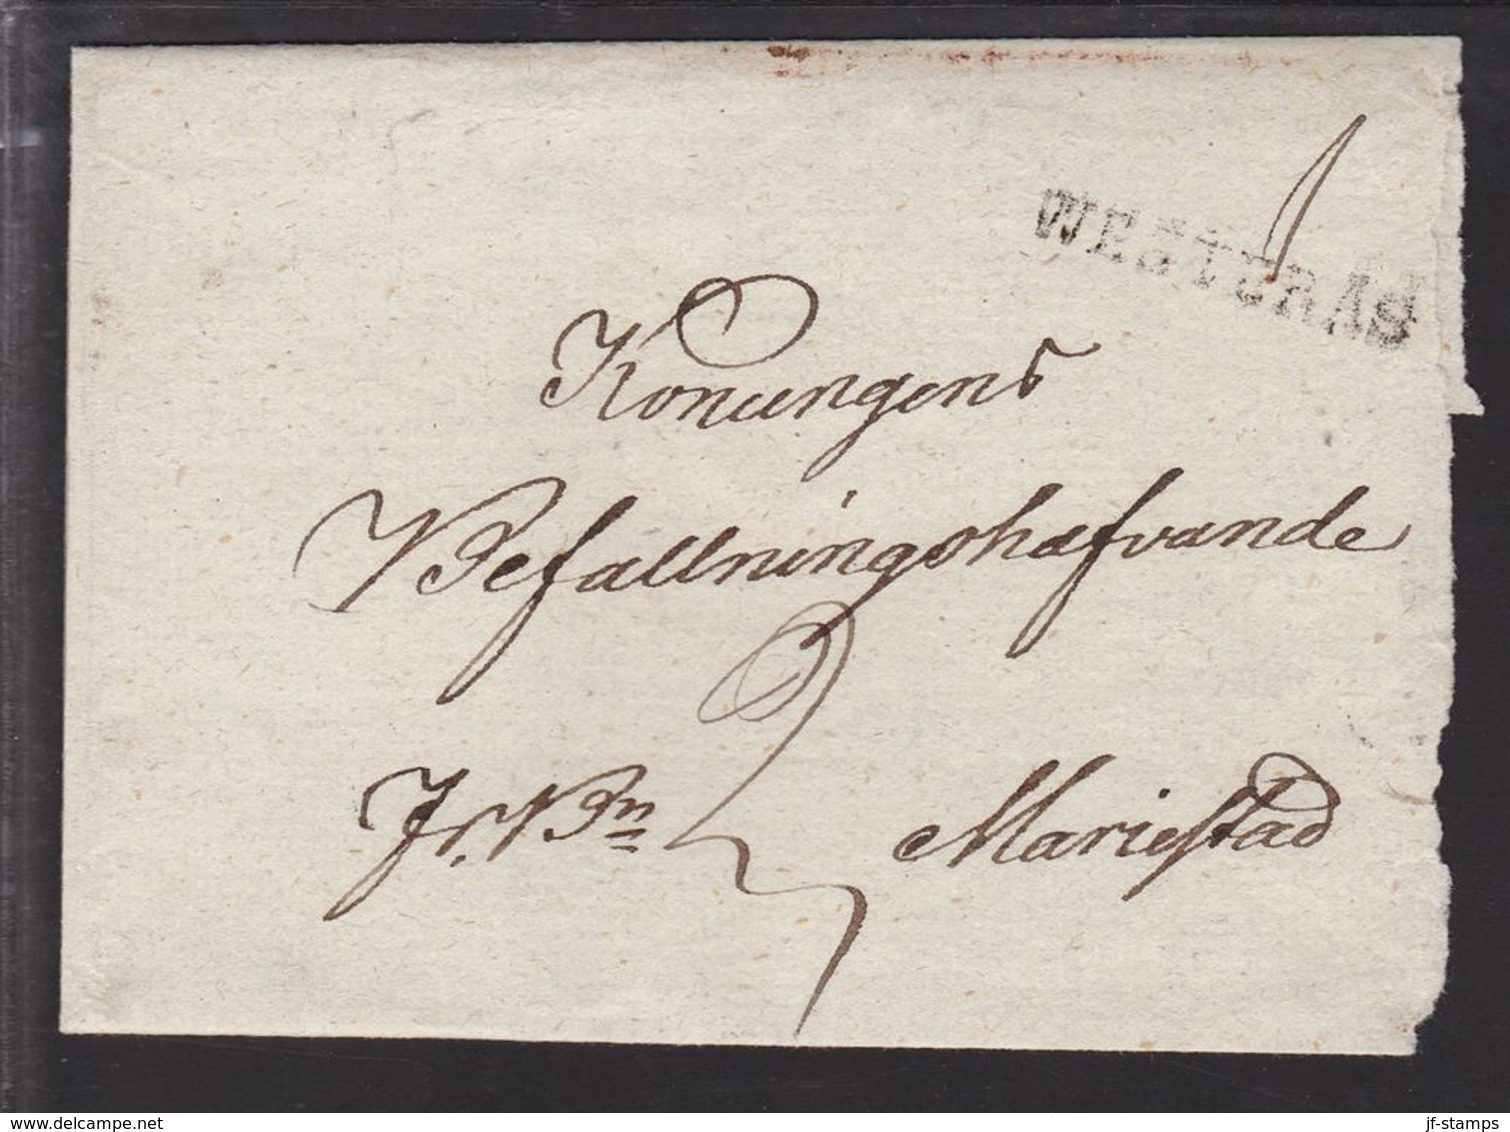 WESTERAS
Konungens
Befallningshafvande
Mariestad
delcampe.net
jf-stamps